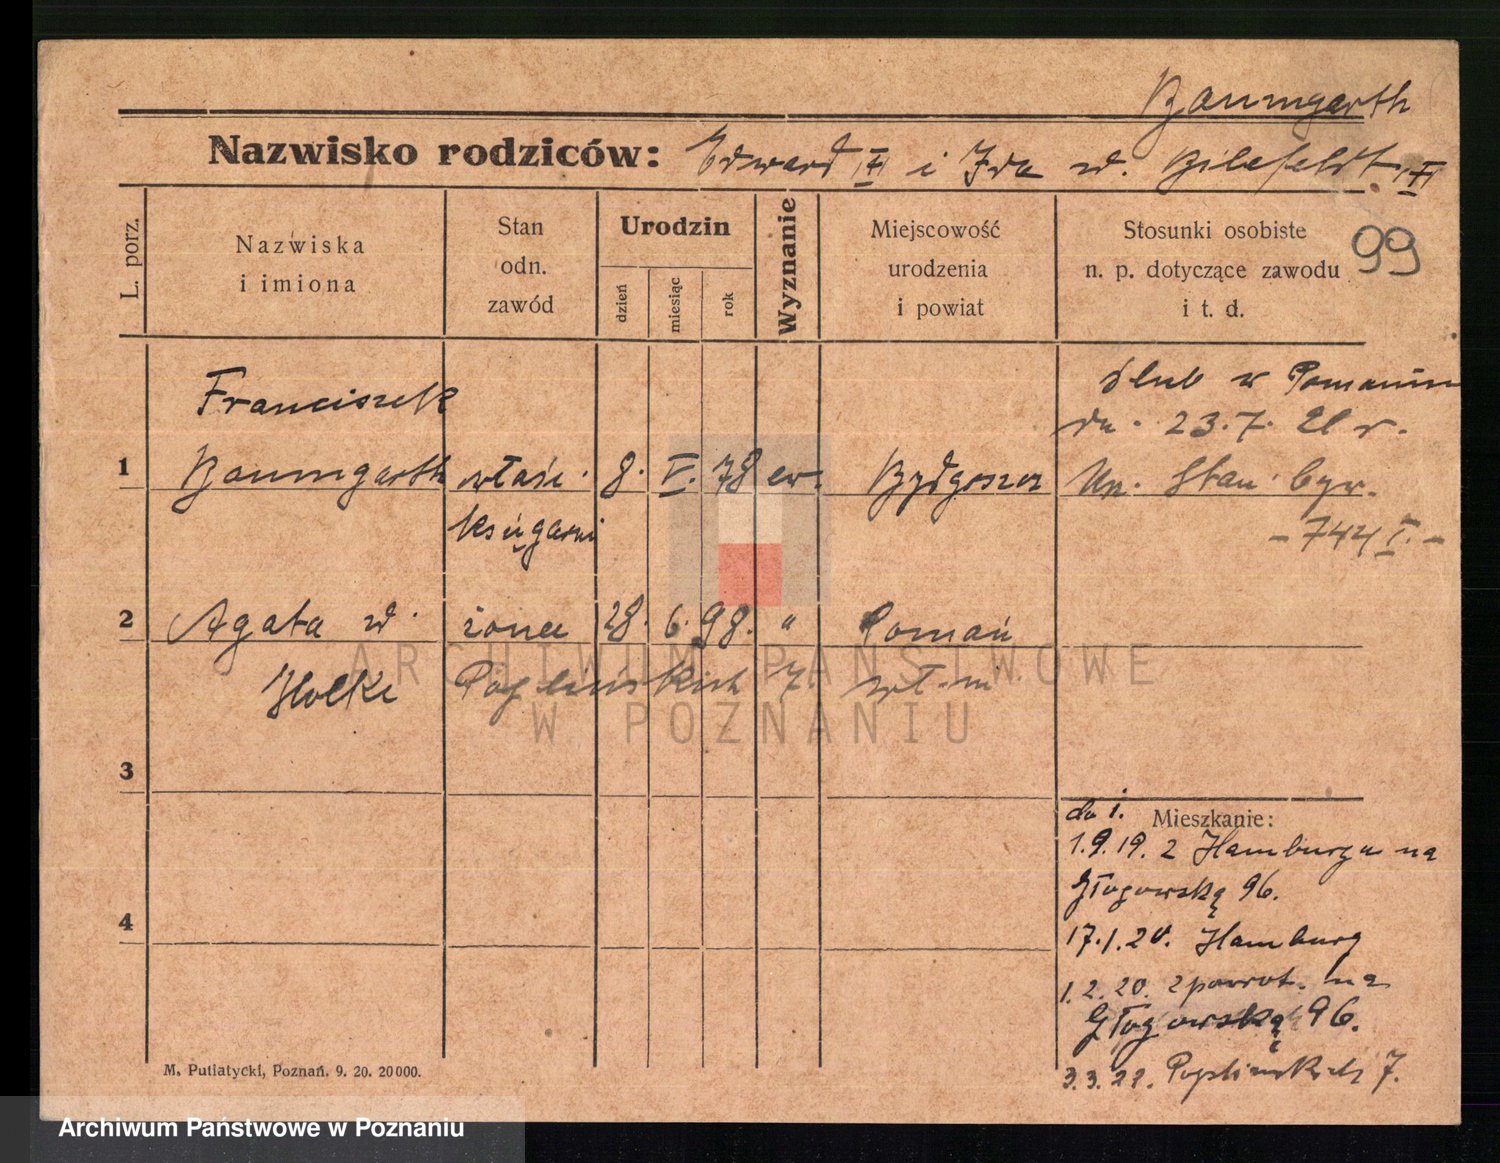 Baumgarth
Nazwisko rodziców: Edward i Ida d. Bilefeldt
99
L. porz.
Nazwiska i imiona
Stan odn. zawód
Urodzin
dzień
miesiąc
rok
Wyznanie
Miejscowość urodzenia i powiat
Stosunki osobiste n. p. dotyczące zawodu i t. d.
Franciszek
1 Baumgarth właśc. 8. V. 78 ew. Bydgoszcz
księgarni
ślub w Poznaniu
dn. 23.7. 21 r.
Stan. Cyw.
- 744 I. -
2 Agata d. żona 28. 6. 98. " Poznań
Poplińskich 7.
3
4
Mieszkanie:
1.9.19. z Hamburga na
Głogowską 96.
17.1.20. Hamburg
1.2.20. zpowrot. na
Głogowską 96.
3.3.22. Poplińskich 7.
M. Putiatycki, Poznań. 9. 20. 20000.
ARCHIWUM PAŃSTWOWE
W POZNANIU
Archiwum Państwowe w Poznaniu